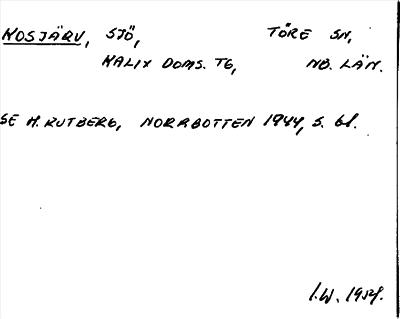 MOSJÄRV, SJÖ, TÖRE SN,
KALIX DOMS. TG, NB. LÄN.
SE H. RUTBERG, NORRBOTTEN 1944, S. 61.
I.W. 1954.